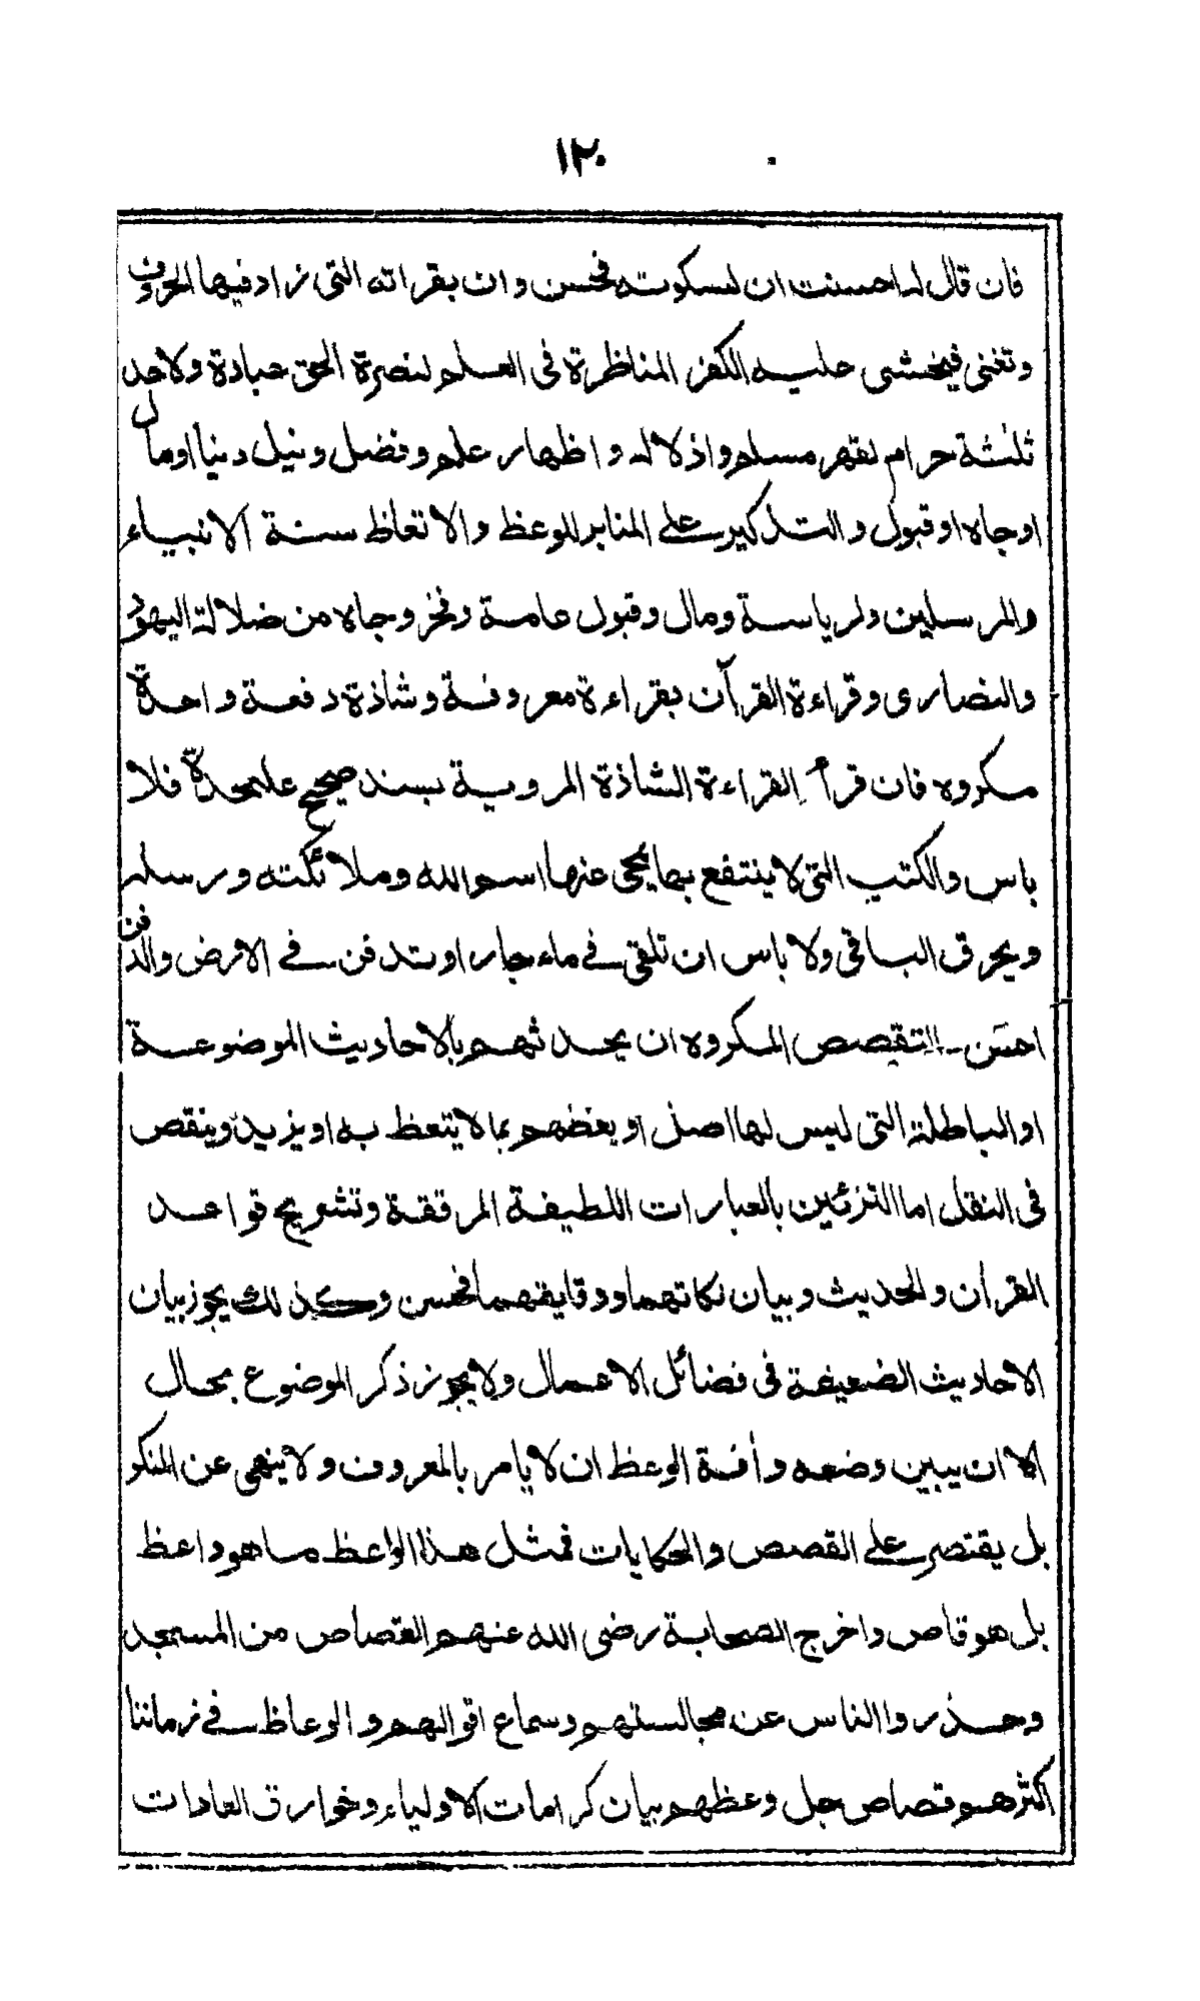 ١٢٠
فان قال له احسنت ان لسكوته فحسن وان بقراته التى زاد فيها الحروف
وتغنى فيخشى عليه الكفر المناظرة فى العلم لنصرة الحق عبادة ولاحد
ثلثة حرام لقهر مسلم واذلاله واظهار علم وفضل ونيل دنيا او مال
او جاه او قبول والتذكير على المنابر للوعظ والاتعاظ سنة الانبياء
والمرسلين ولرياسة ومال وقبول عامة وفخر وجاه من ضلالة اليهود
والنصارى وقراءة القرآن بقراءة معروفة وشاذة دفعة واحدة
مكروه فان قرأ القراءة الشاذة المروية بسند صحيح علىحدة فلا
باس والكتب التى لا ينتفع بها يمحى عنها اسم الله وملائكته ورسله
ويحرق الباقى ولا باس ان تلقى فى ماء جار او تدفن فى الارض والدفن
احسن ـ التقصص المكروه ان يحدثهم بالاحاديث الموضوعة
او الباطلة التى ليس لها اصل او يعظهم بما لا يتعظ به او يزيد وينقص
فى النقل اما التزئين بالعبارات اللطيفة المرققة وتشريح قواعد
القرأن والحديث وبيان نكاتهما ودقايقهما فحسن وكذلك يجوز بيان
الاحاديث الضعيفة فى فضائل الاعمال ولا يجوز ذكر الموضوع بحال
الا ان يبين وضعه وأفة الوعظ ان لا يامر بالمعروف ولا ينهى عن المنكر
بل يقتصر على القصص والحكايات فمثل هذا الواعظ ما هو واعظ
بل هو قاص واخرج الصحابة رضى الله عنهم القصاص من المسجد
وحذروا الناس عن مجالستهم وسماع اقوالهم والوعاظ فى زماننا
اكثرهم قصاص جل وعظهم بيان كرامات الاولياء وخوارق العادات